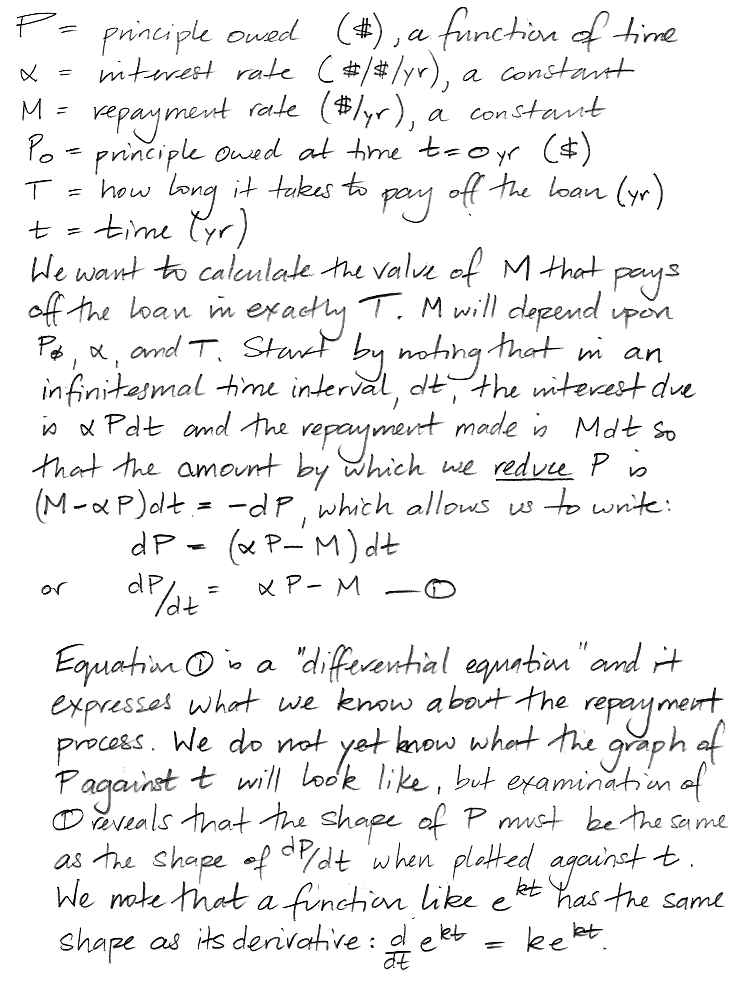 P = principle owed ($), a function of time
α = interest rate ($/$/yr), a constant
M = repayment rate ($/yr), a constant
P₀ = principle owed at time t=0yr ($)
T = how long it takes to pay off the loan (yr)
t = time (yr)
We want to calculate the value of M that pays
off the loan in exactly T. M will depend upon
P₀, α, and T. Start by noting that in an
infinitesmal time interval, dt, the interest due
is αPdt and the repayment made is Mdt so
that the amount by which we reduce P is
(M-αP)dt = -dP, which allows us to write:
dP = (αP-M)dt
or dP/dt = αP-M —①
Equation ① is a "differential equation" and it
expresses what we know about the repayment
process. We do not yet know what the graph of
P against t will look like, but examination of
① reveals that the shape of P must be the same
as the shape of dP/dt when plotted against t.
We note that a function like e^kt has the same
shape as its derivative: d/dt e^kt = ke^kt.